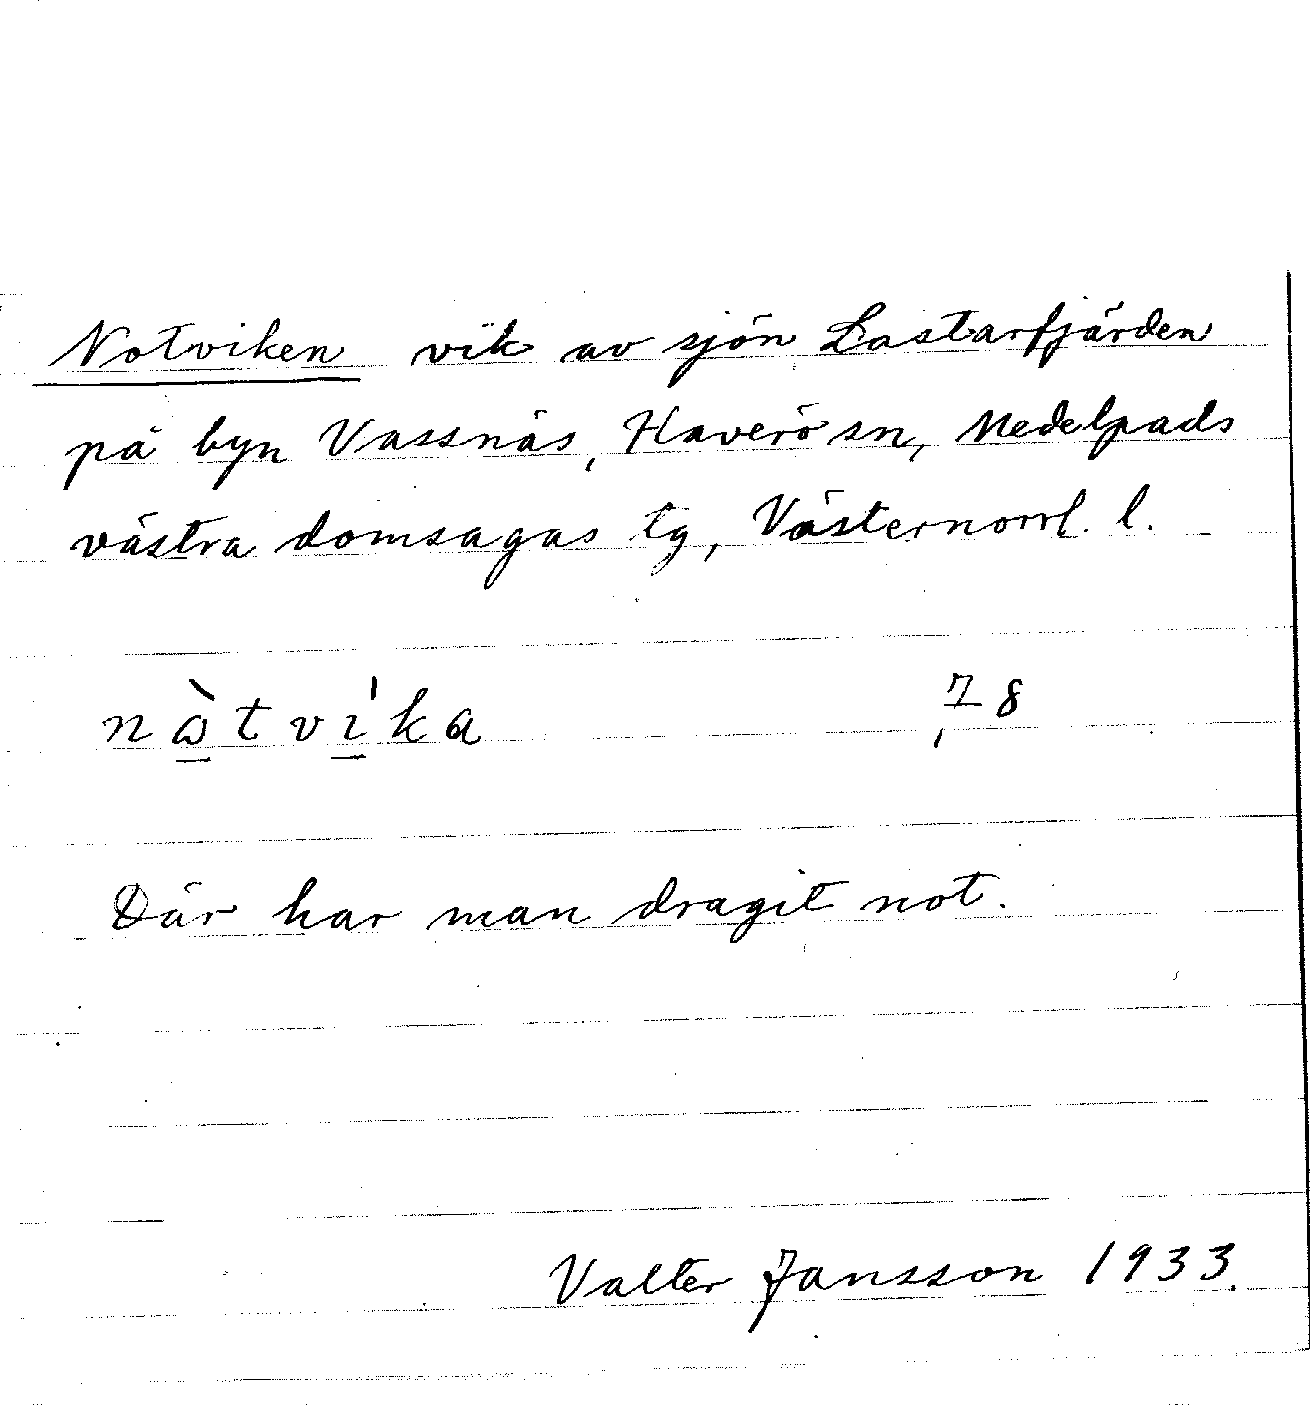 Notviken vik av sjön Lastarfjärden
på byn Vassnäs, Haverö sn, Medelpads
västra domsagas tg, Västernorrl. l.
nɷ̠̀tvı̠́ka 78
Där har man dragit not.
Valter Jansson 1933.